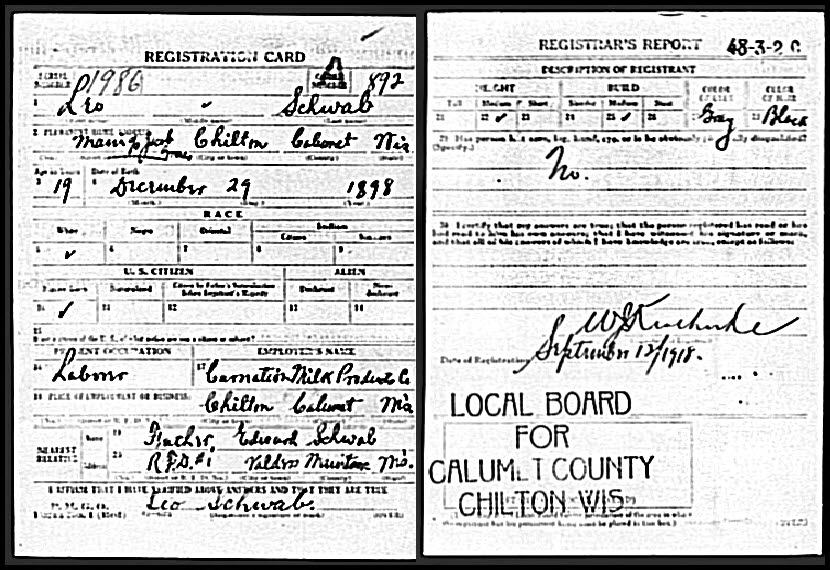 REGISTRATION CARD
SERIAL NUMBER 1986 ORDER NUMBER 892
1 Leo Schwab
(First name) (Middle name) (Last name)
2 PERMANENT HOME ADDRESS
Main Chilton Calumet Wis
(City or town) (County) (State)
Age in Years Date of Birth
3 19 4 December 29 1898
(Month) (Day) (Year)
RACE
White Negro Oriental Indian
Citizen
5 ✓ 6 7 8 9
U. S. CITIZEN ALIEN
Native Born Naturalized Citizen by Father's Naturalization Before Registrant's Majority Declarant Non-declarant
10 ✓ 11 12 13 14
15
PRESENT OCCUPATION EMPLOYER'S NAME
16 Labour 17 Carnation Milk Products Co
18 PLACE OF EMPLOYMENT OR BUSINESS
Chilton Calumet Wis
NEAREST RELATIVE Name 19 Edward Schwab
Address 20 R.F.D. #1 Valders Wis.
I AFFIRM THAT I HAVE VERIFIED ABOVE ANSWERS AND THAT THEY ARE TRUE
Leo Schwab.
REGISTRAR'S REPORT 48-3-2 C
DESCRIPTION OF REGISTRANT
HEIGHT BUILD COLOR OF EYES COLOR OF HAIR
Tall Medium Short Slender Medium Stout
21 22 ✓ 23 24 25 ✓ 26 27 Gray 28 Black
29 Has person lost arm, leg, hand, eye, or is he obviously physically disqualified?
(Specify.)
No.
30 I certify that my answers are true; that the person registered has read or has
had read to him his own answers; that I have witnessed his signature or mark,
and that all of his answers of which I have knowledge are true, except as follows:
Date of Registration September 12/1918.
LOCAL BOARD
FOR
CALUMET COUNTY
CHILTON WIS